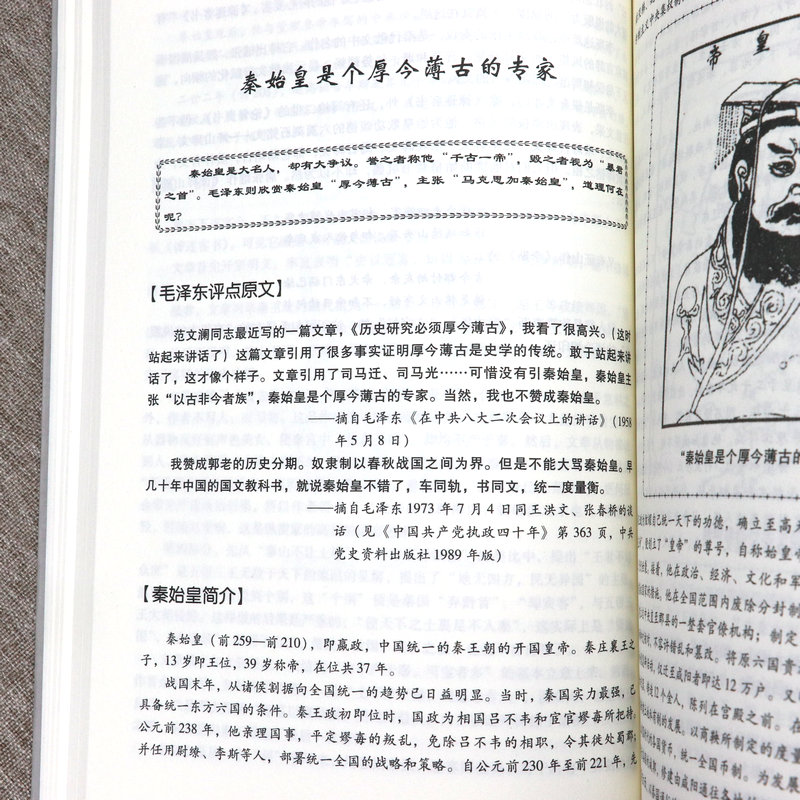 秦始皇是个厚今薄古的专家
秦始皇是大名人，却有大争议。誉之者称他“千古一帝”，毁之者视为“暴君
之首”。毛泽东则欣赏秦始皇“厚今薄古”，主张“马克思加秦始皇”，道理何在
呢？
【毛泽东评点原文】
范文澜同志最近写的一篇文章，《历史研究必须厚今薄古》，我看了很高兴。（这时
站起来讲话了）这篇文章引用了很多事实证明厚今薄古是史学的传统。敢于站起来讲
话了，这才像个样子。文章引用了司马迁、司马光……可惜没有引秦始皇，秦始皇主
张“以古非今者族”，秦始皇是个厚今薄古的专家。当然，我也不赞成秦始皇。
——摘自毛泽东《在中共八大二次会议上的讲话》（1958
年5月8日）
我赞成郭老的历史分期。奴隶制以春秋战国之间为界。但是不能大骂秦始皇。早
几十年中国的国文教科书，就说秦始皇不错了，车同轨，书同文，统一度量衡。
——摘自毛泽东1973年7月4日同王洪文、张春桥的谈
话（见《中国共产党执政四十年》第363页，中共
党史资料出版社1989年版）
【秦始皇简介】
秦始皇（前259—前210），即嬴政，中国统一的秦王朝的开国皇帝。秦庄襄王之
子，13岁即王位，39岁称帝，在位共37年。
战国末年，从诸侯割据向全国统一的趋势已日益明显。当时，秦国实力最强，已
具备统一东方六国的条件。秦王政初即位时，国政为相国吕不韦和宦官嫪毐所把持。
公元前238年，他亲理国事，平定嫪毐的叛乱，免除吕不韦的相职，令其徙处蜀郡，
并任用尉缭、李斯等人，部署统一全国的战略和策略。自公元前230年至前221年，先
帝皇
“秦始皇是个厚今薄古的
自己统一天下的功德，确立至高无
创立了“皇帝”的尊号，自称始皇帝
他在政治、经济、文化和军
他在全国范围内废除分封制
的一整套官僚机构；制定
不容许错乱和篡改。将原六国贵
仅迁至咸阳者即达12万户。又
12个金人，陈列在宫殿之前。在
以商鞅所制定的度量
统一全国币制。为发展
修建由咸阳通往各地